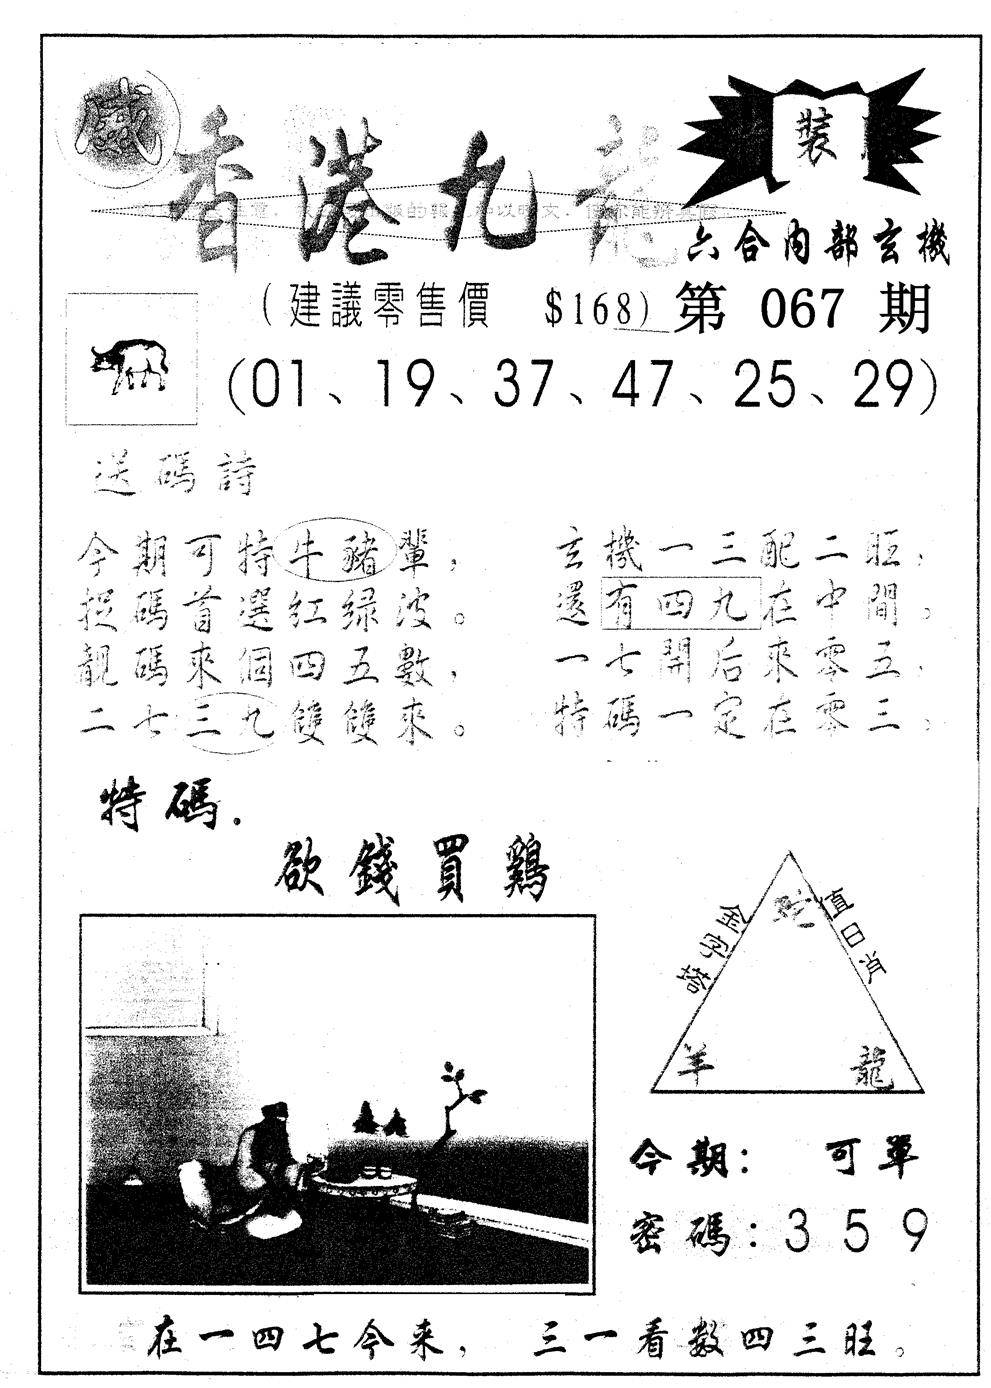 威
香港九龍
裝
六合内部玄機
(建議零售價 $168) 第 067 期
(01、19、37、47、25、29)
送碼詩
今期可特牛豬輩，
捉碼首選紅绿波。
靚碼來個四五數，
二七三九雙雙來。
玄機一三配二旺，
還有四九在中間。
一七開后來零五，
特碼一定在零三，
特碼.
欲錢買鷄
金字塔
值日肖
蛇
羊 龍
今期： 可單
密碼：3 5 9
在一四七今来， 三一看数四三旺。